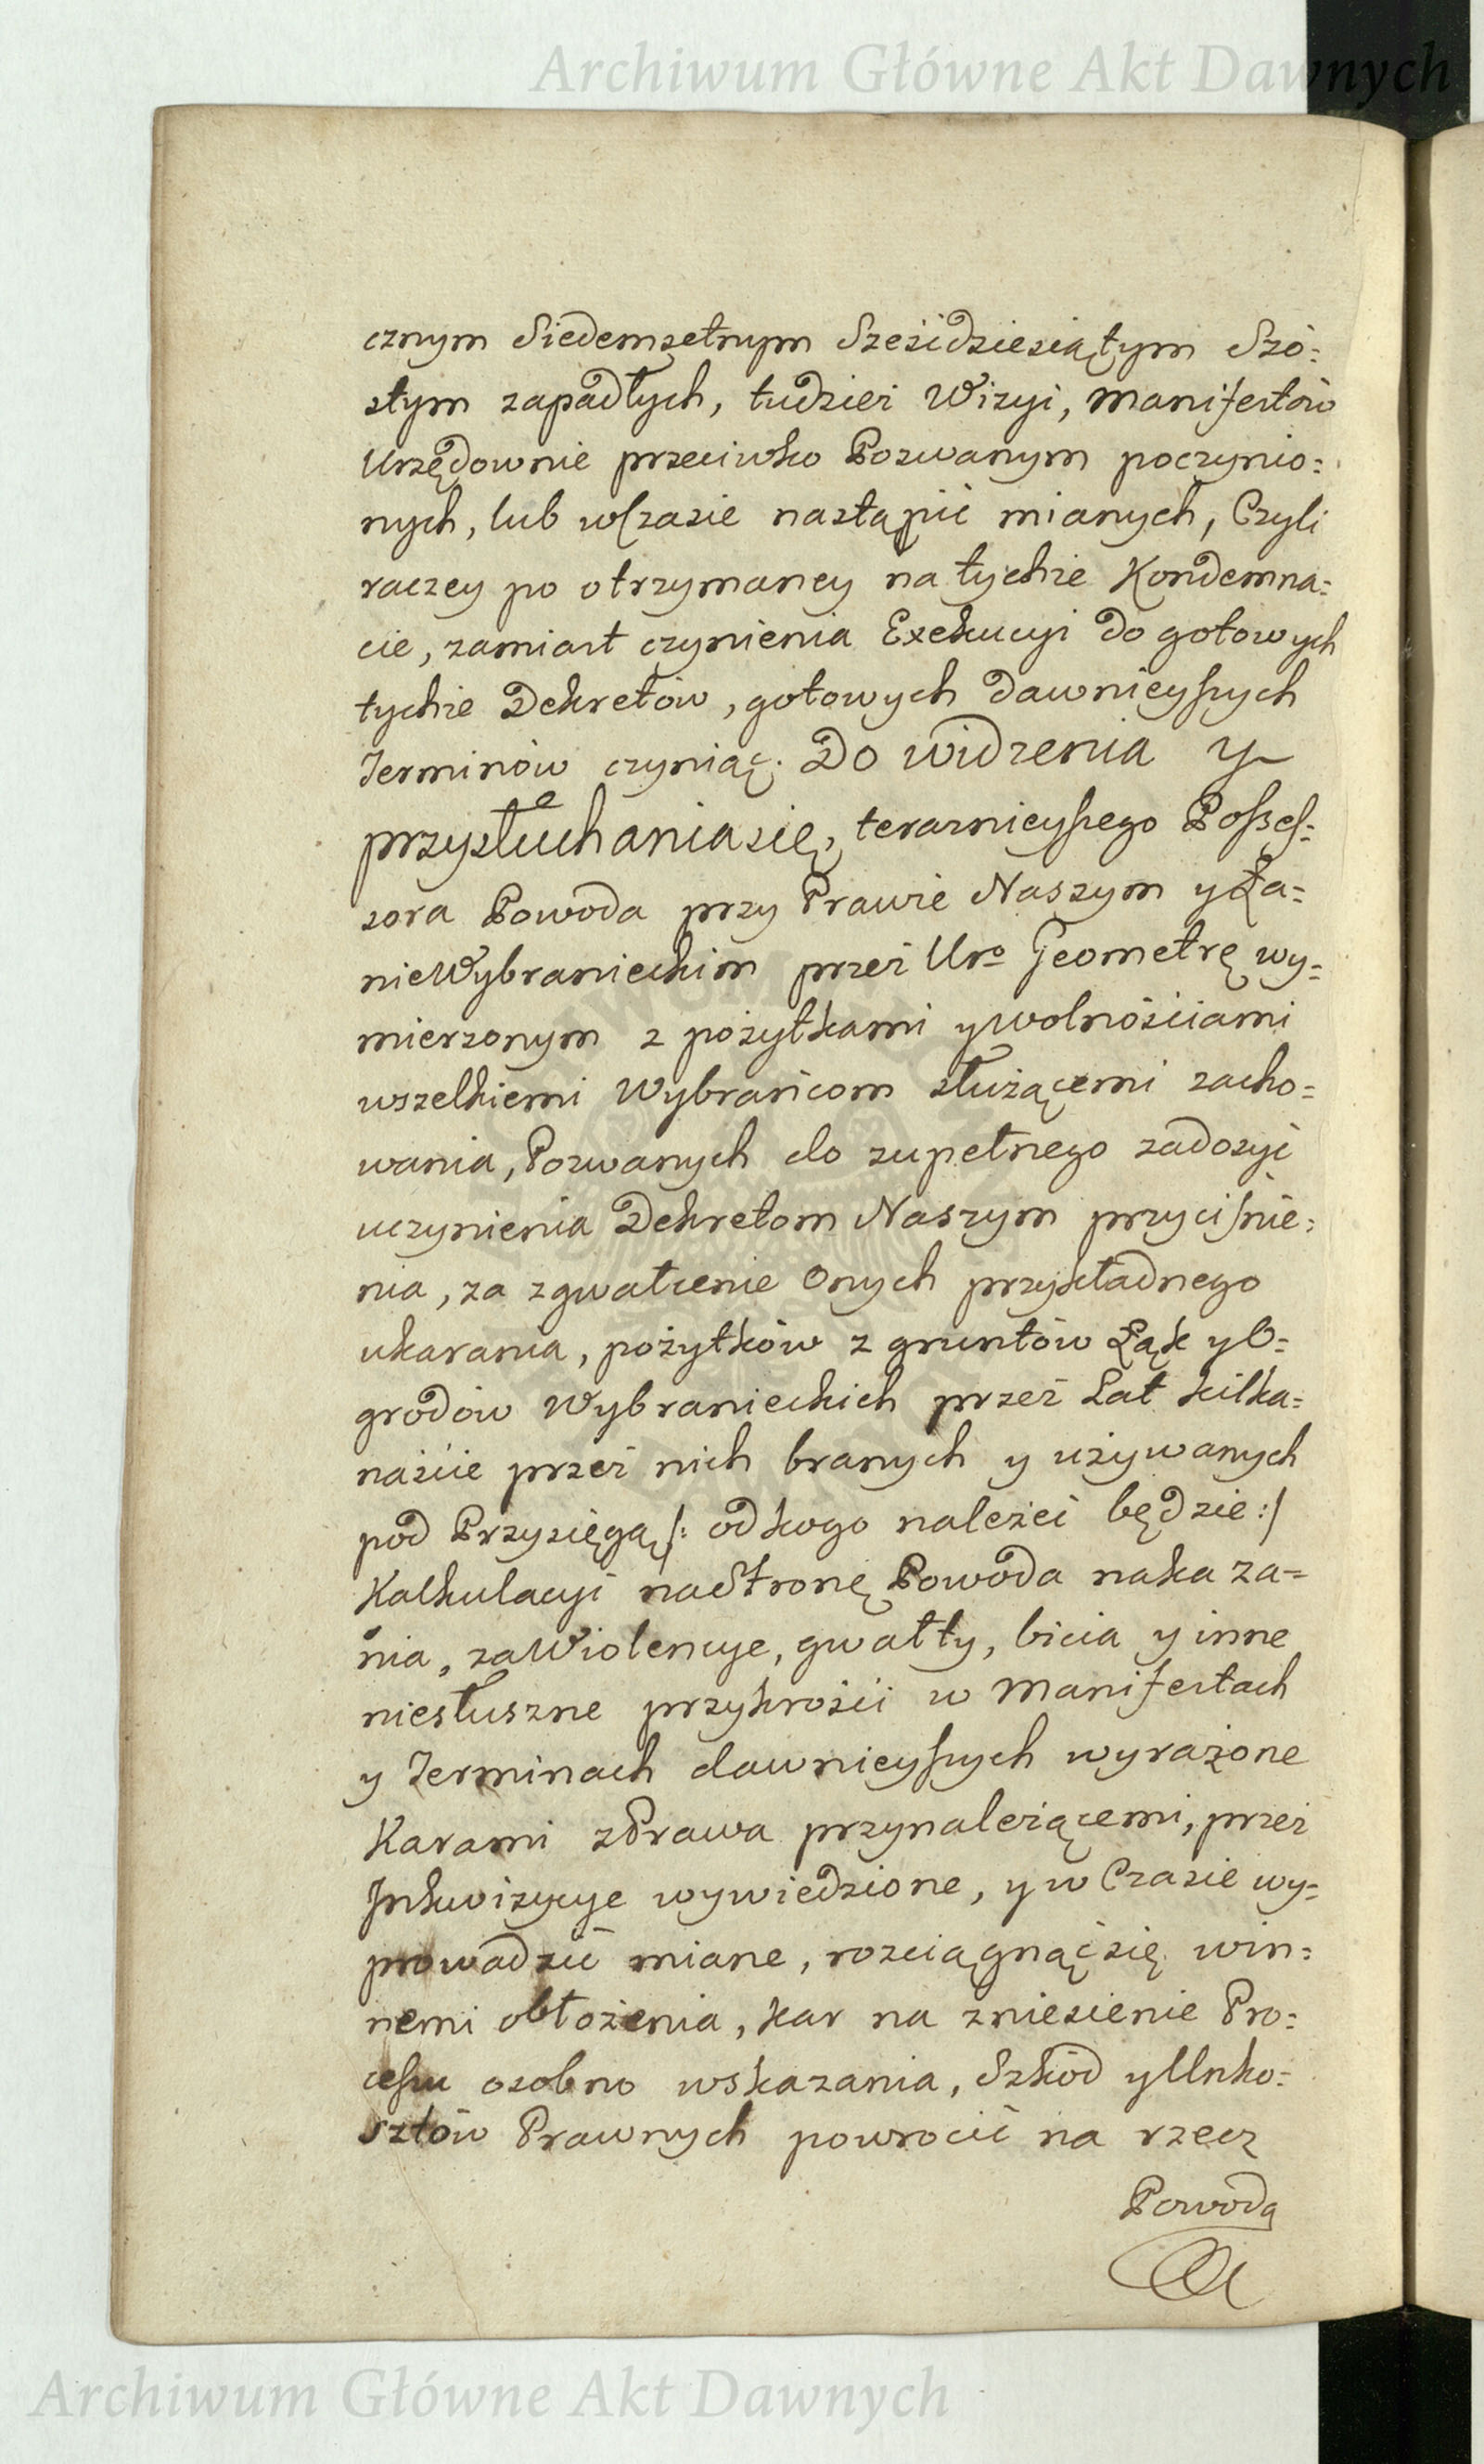 Archiwum Główne Akt Dawnych
cznym Siedemsetnym Sześćdziesiątym Szó=
stym zapadłych, tudzież Wizyi, Manifestów
Urzędownie przeciwko Pozwanym poczynio=
nych, lub wCzasie nastąpić mianych, Czyli
raczey po otrzymaney na tychże Kondemna=
cie, zamiast czynienia Exekucyi do gotowych
tychże Dekretów, gotowych dawnieyszych
Terminów czyniąc. Do widzenia y
przysłuchania się, teraznieyszego Possess=
sora Powoda przy Prawie Naszym y Ła=
nie Wybranieckim przez Uro Geometrę wy=
mierzonym z pożytkami y wolnościami
wszelkiemi Wybrańcom służącemi zacho=
wania, Pozwanych do zupełnego zadosyć
uczynienia Dekretom Naszym przyciśnie=
nia, za zgwałcenie Onych przykładnego
ukarania, pożytków z gruntów Łąk y O=
grodów Wybranieckich przez Lat kilka=
naście przez nich branych y używanych
pod Przysięgą /: od kogo należeć będzie :/
Kalkulacyi na Stronę Powoda nakaza=
nia, za Wiolencye, gwałty, bicia y inne
niesłuszne przykrości w Manifestach
y Terminach dawnieyszych wyrażone
Karami z Prawa przynależącemi, przez
Inkwizycye wywiedzione, y w Czasie wy=
prowadzić miane, rozciągnąć się win=
nemi obłożenia, kar na zniesienie Pro=
cessu osobno wskazania, Szkód y Unko=
sztów Prawnych powrocić na rzecz
Powoda
Archiwum Główne Akt Dawnych